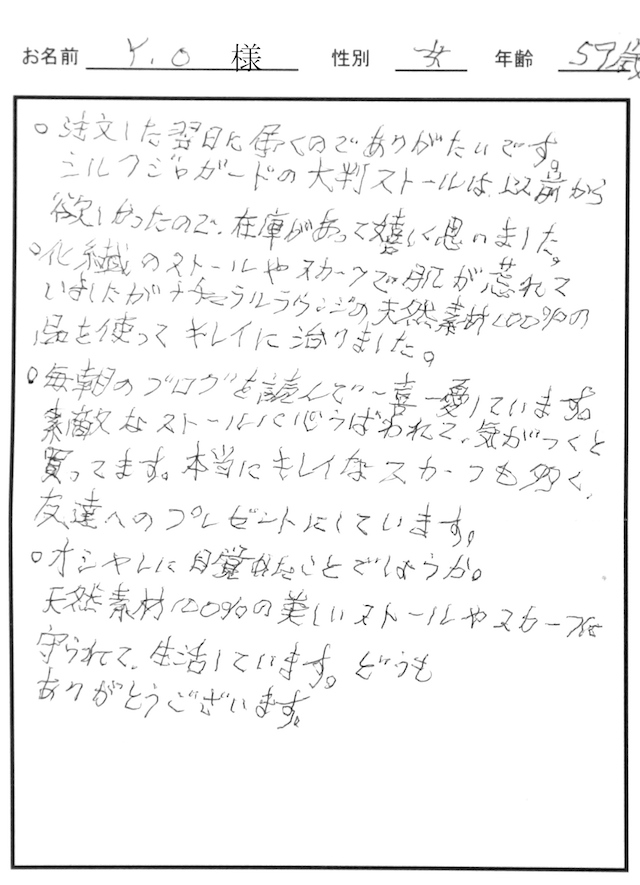 お名前 Y.O 様 性別 女 年齢 57歳
○注文した翌日に届くのでありがたいです。
シルクジャガードの大判ストールは、以前から
欲しかったので、在庫があって嬉しく思いました。
○化繊のストールやスカーフで肌が荒れて
いましたがナチュラルラウンジの天然素材100%の
品を使ってキレイに治りました。
○毎朝のブログを読んで一喜一憂しています。
素敵なストールに心うばわれて、気がつくと
買ってます。本当にキレイなスカーフも多く、
友達へのプレゼントにしています。
○オシャレに目覚めたことでしょうか。
天然素材100%の美しいストールやスカーフに
守られて、生活しています。どうも
ありがとうございます。